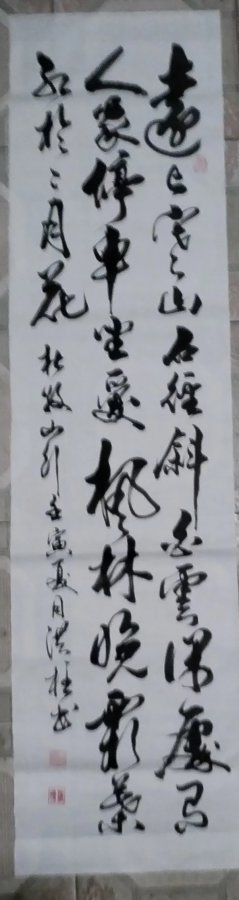 遠上寒山石徑斜白雲深處有
人家停車坐愛楓林晚霜葉
紅於二月花 杜牧山行 壬寅夏月洪柱书